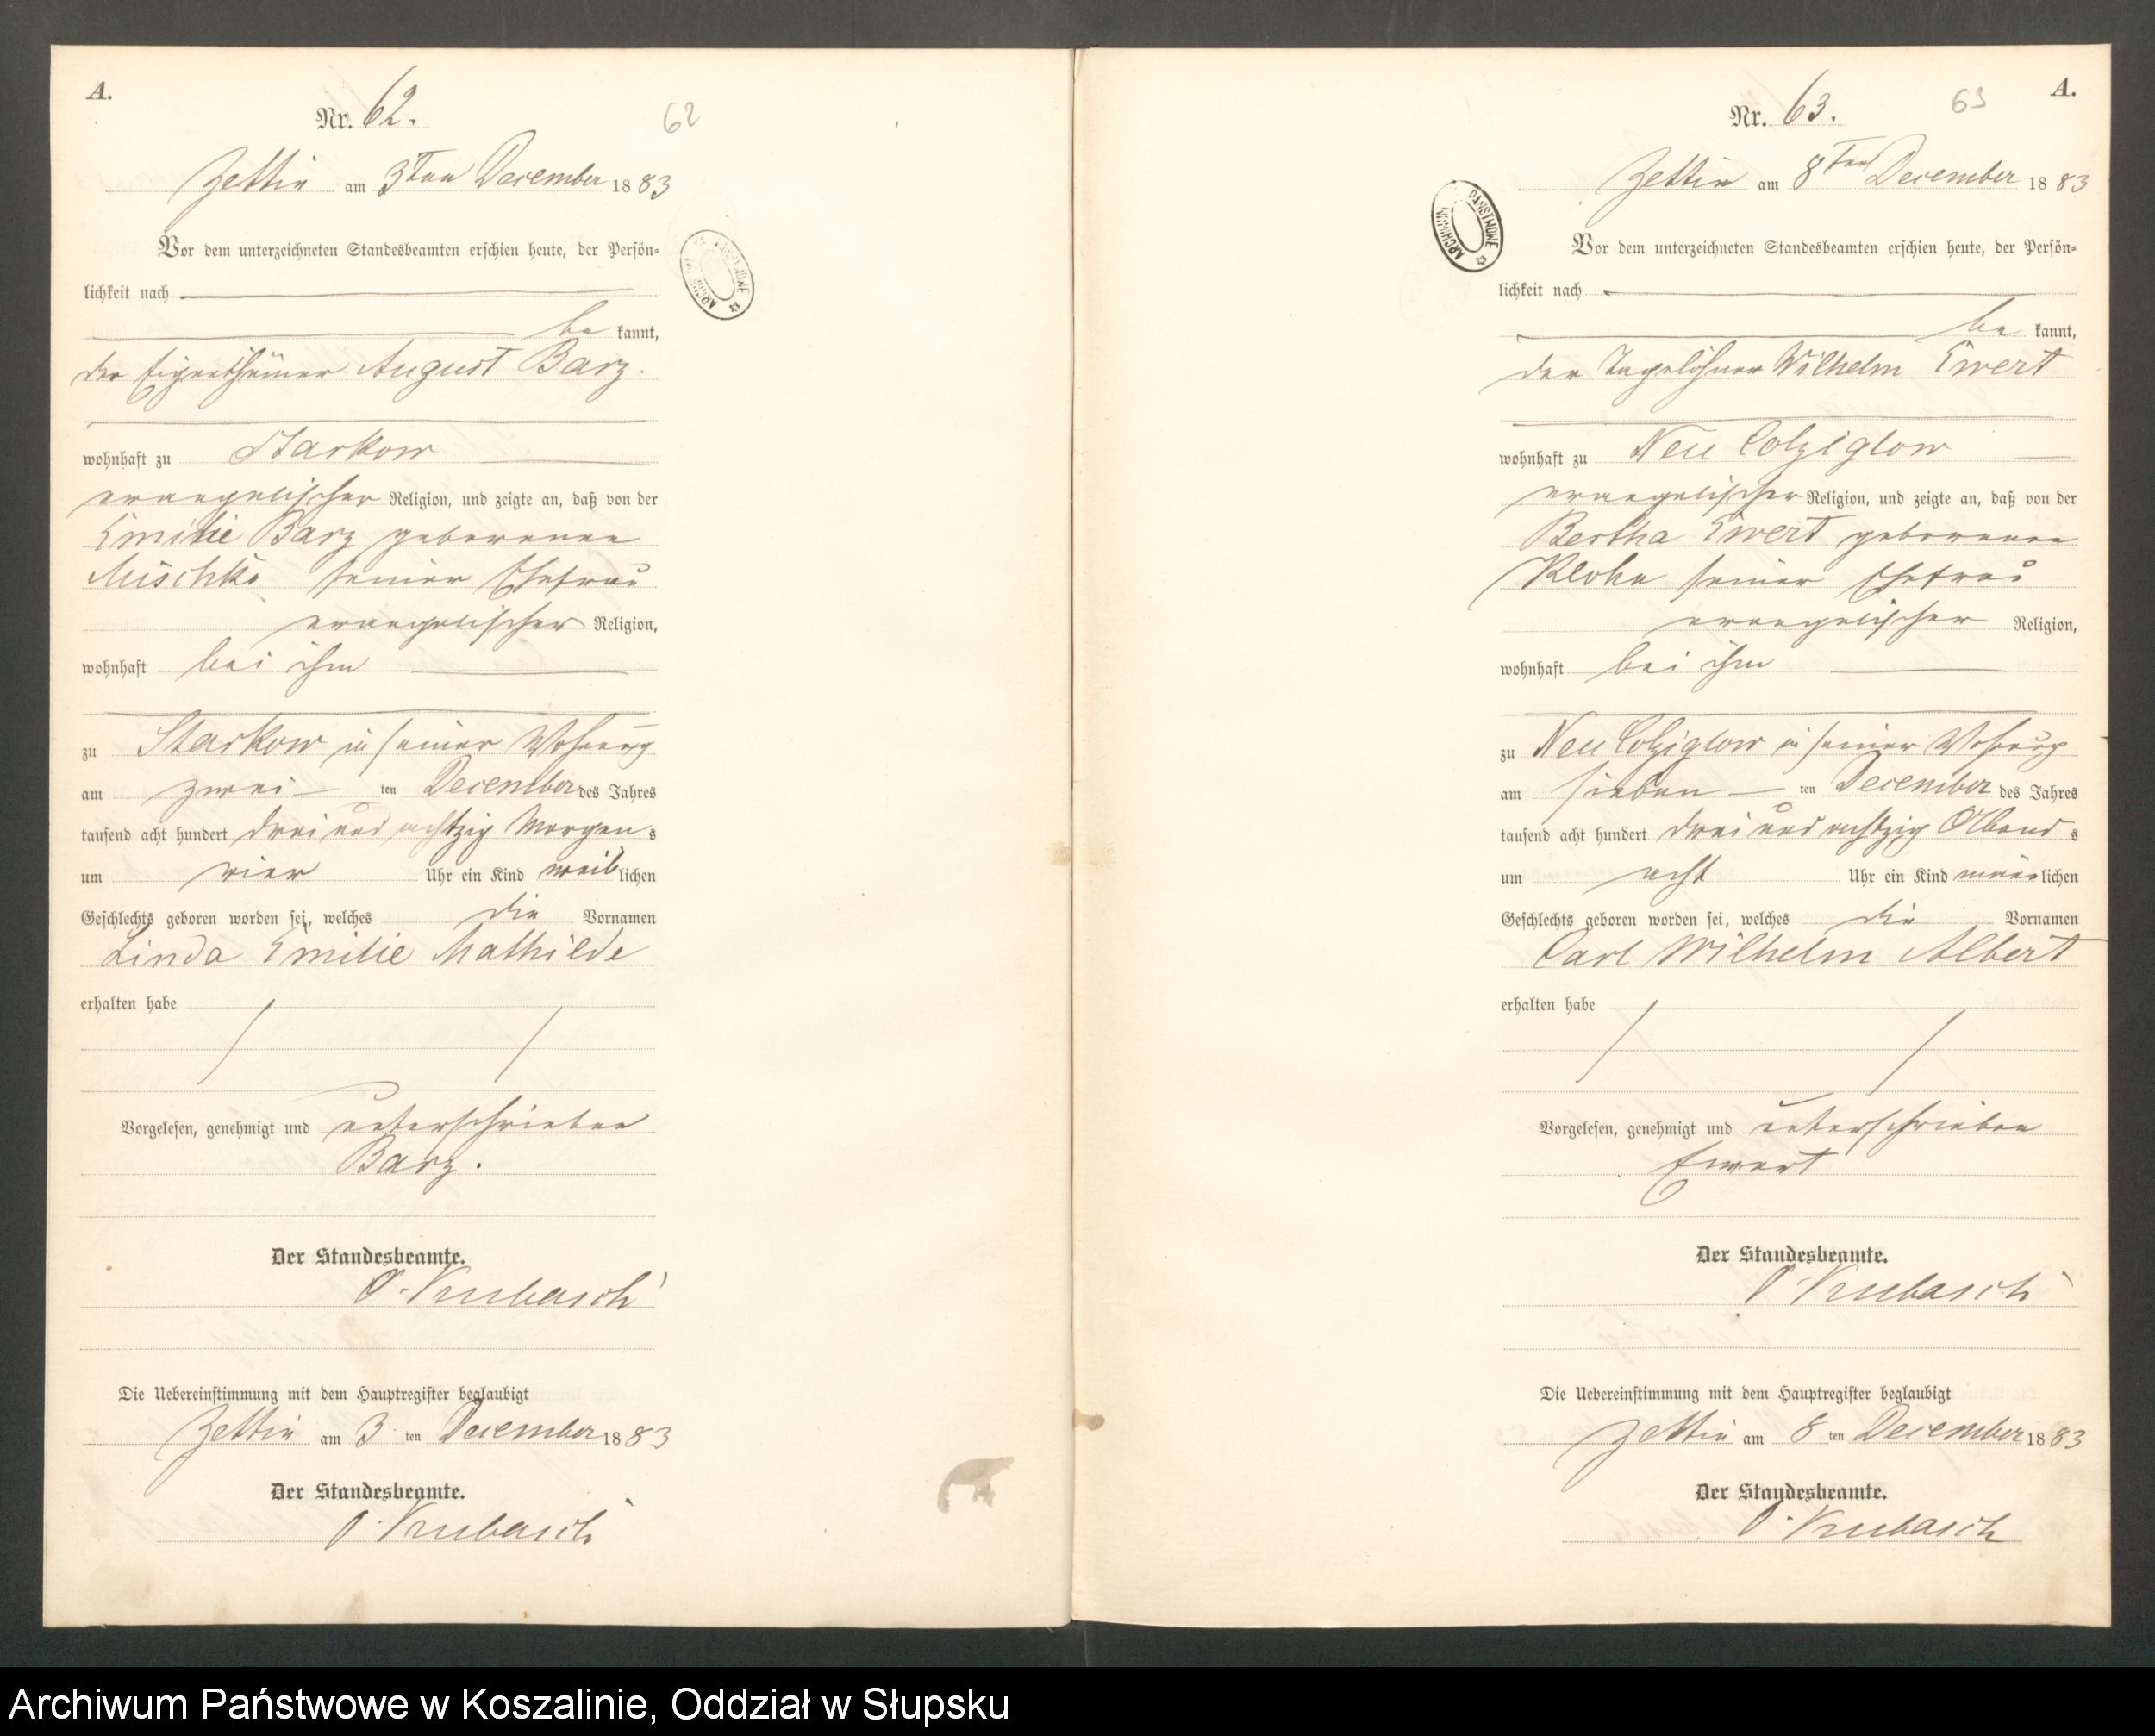 A.
Nr. 62.
62
Zettin am 3ten December 1883
Vor dem unterzeichneten Standesbeamten erschien heute, der Persön=
lichkeit nach
be kannt,
der Eigenthümer August Barz.
wohnhaft zu Starkow
evangelischer Religion, und zeigte an, daß von der
Emilie Barz geborenen
Mischke seiner Ehefrau
evangelischer Religion,
wohnhaft bei ihm
zu Starkow in seiner Wohnung
am zwei ten December des Jahres
tausend acht hundert drei und achtzig Morgens
um vier Uhr ein Kind weiblichen
Geschlechts geboren worden sei, welches die Vornamen
Linda Emilie Mathilde
erhalten habe
Vorgelesen, genehmigt und unterschrieben
Barz.
Der Standesbeamte.
O. Krubasch
Die Uebereinstimmung mit dem Hauptregister beglaubigt
Zettin am 3. ten December 1883
Der Standesbeamte.
O. Krubasch
ARCHIWUM PAŃSTWOWE
A.
Nr. 63.
63
Zettin am 8ten December 1883
ARCHIWUM PAŃSTWOWE
Vor dem unterzeichneten Standesbeamten erschien heute, der Persön=
lichkeit nach
be kannt,
der Tagelöhner Wilhelm Ewert
wohnhaft zu Neu Colziglow
evangelischer Religion, und zeigte an, daß von der
Bertha Ewert geborenen
Klohn seiner Ehefrau
evangelischer Religion,
wohnhaft bei ihm
zu Neu Colziglow in seiner Wohnung
am sieben ten December des Jahres
tausend acht hundert drei und achtzig Abends
um acht Uhr ein Kind männlichen
Geschlechts geboren worden sei, welches die Vornamen
Carl Wilhelm Albert
erhalten habe
Vorgelesen, genehmigt und unterschrieben
Ewert
Der Standesbeamte.
O. Krubasch
Die Uebereinstimmung mit dem Hauptregister beglaubigt
Zettin am 8 ten December 1883
Der Standesbeamte.
O. Krubasch
Archiwum Państwowe w Koszalinie, Oddział w Słupsku